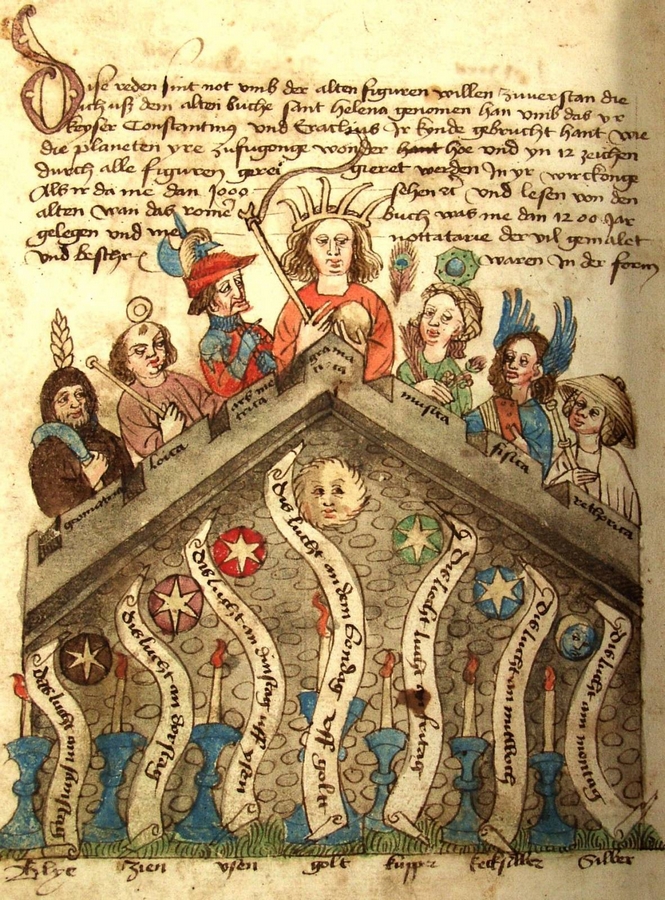 Dise reden sint not umb der alten figuren willen zuverstan die
uch uß dem alten buche sant helena genomen han umb das yr
keyser Constantinus und Eraclius Ir kynde gebrucht hant wie
die planeten yre zufugonge wonder hant hoe und yn 12 zeichen
durch alle figuren gieret werden In yr wirckonge
Als ir da me dan 1000 und lesen von den
alten wan das buch was me dan 1200 Jar
gelegen und der vil gemalet
und waren In der form
gramatica
arsmetrica
musica
loica
fisica
geometria
rethorica
die lucht an dem sondag uff golt
die lucht an dinstag uff ysen
die lucht an
die lucht
die lucht an mitwoch
die lucht am montag
Blye Zien ysen golt kuppr kecksilber Silber